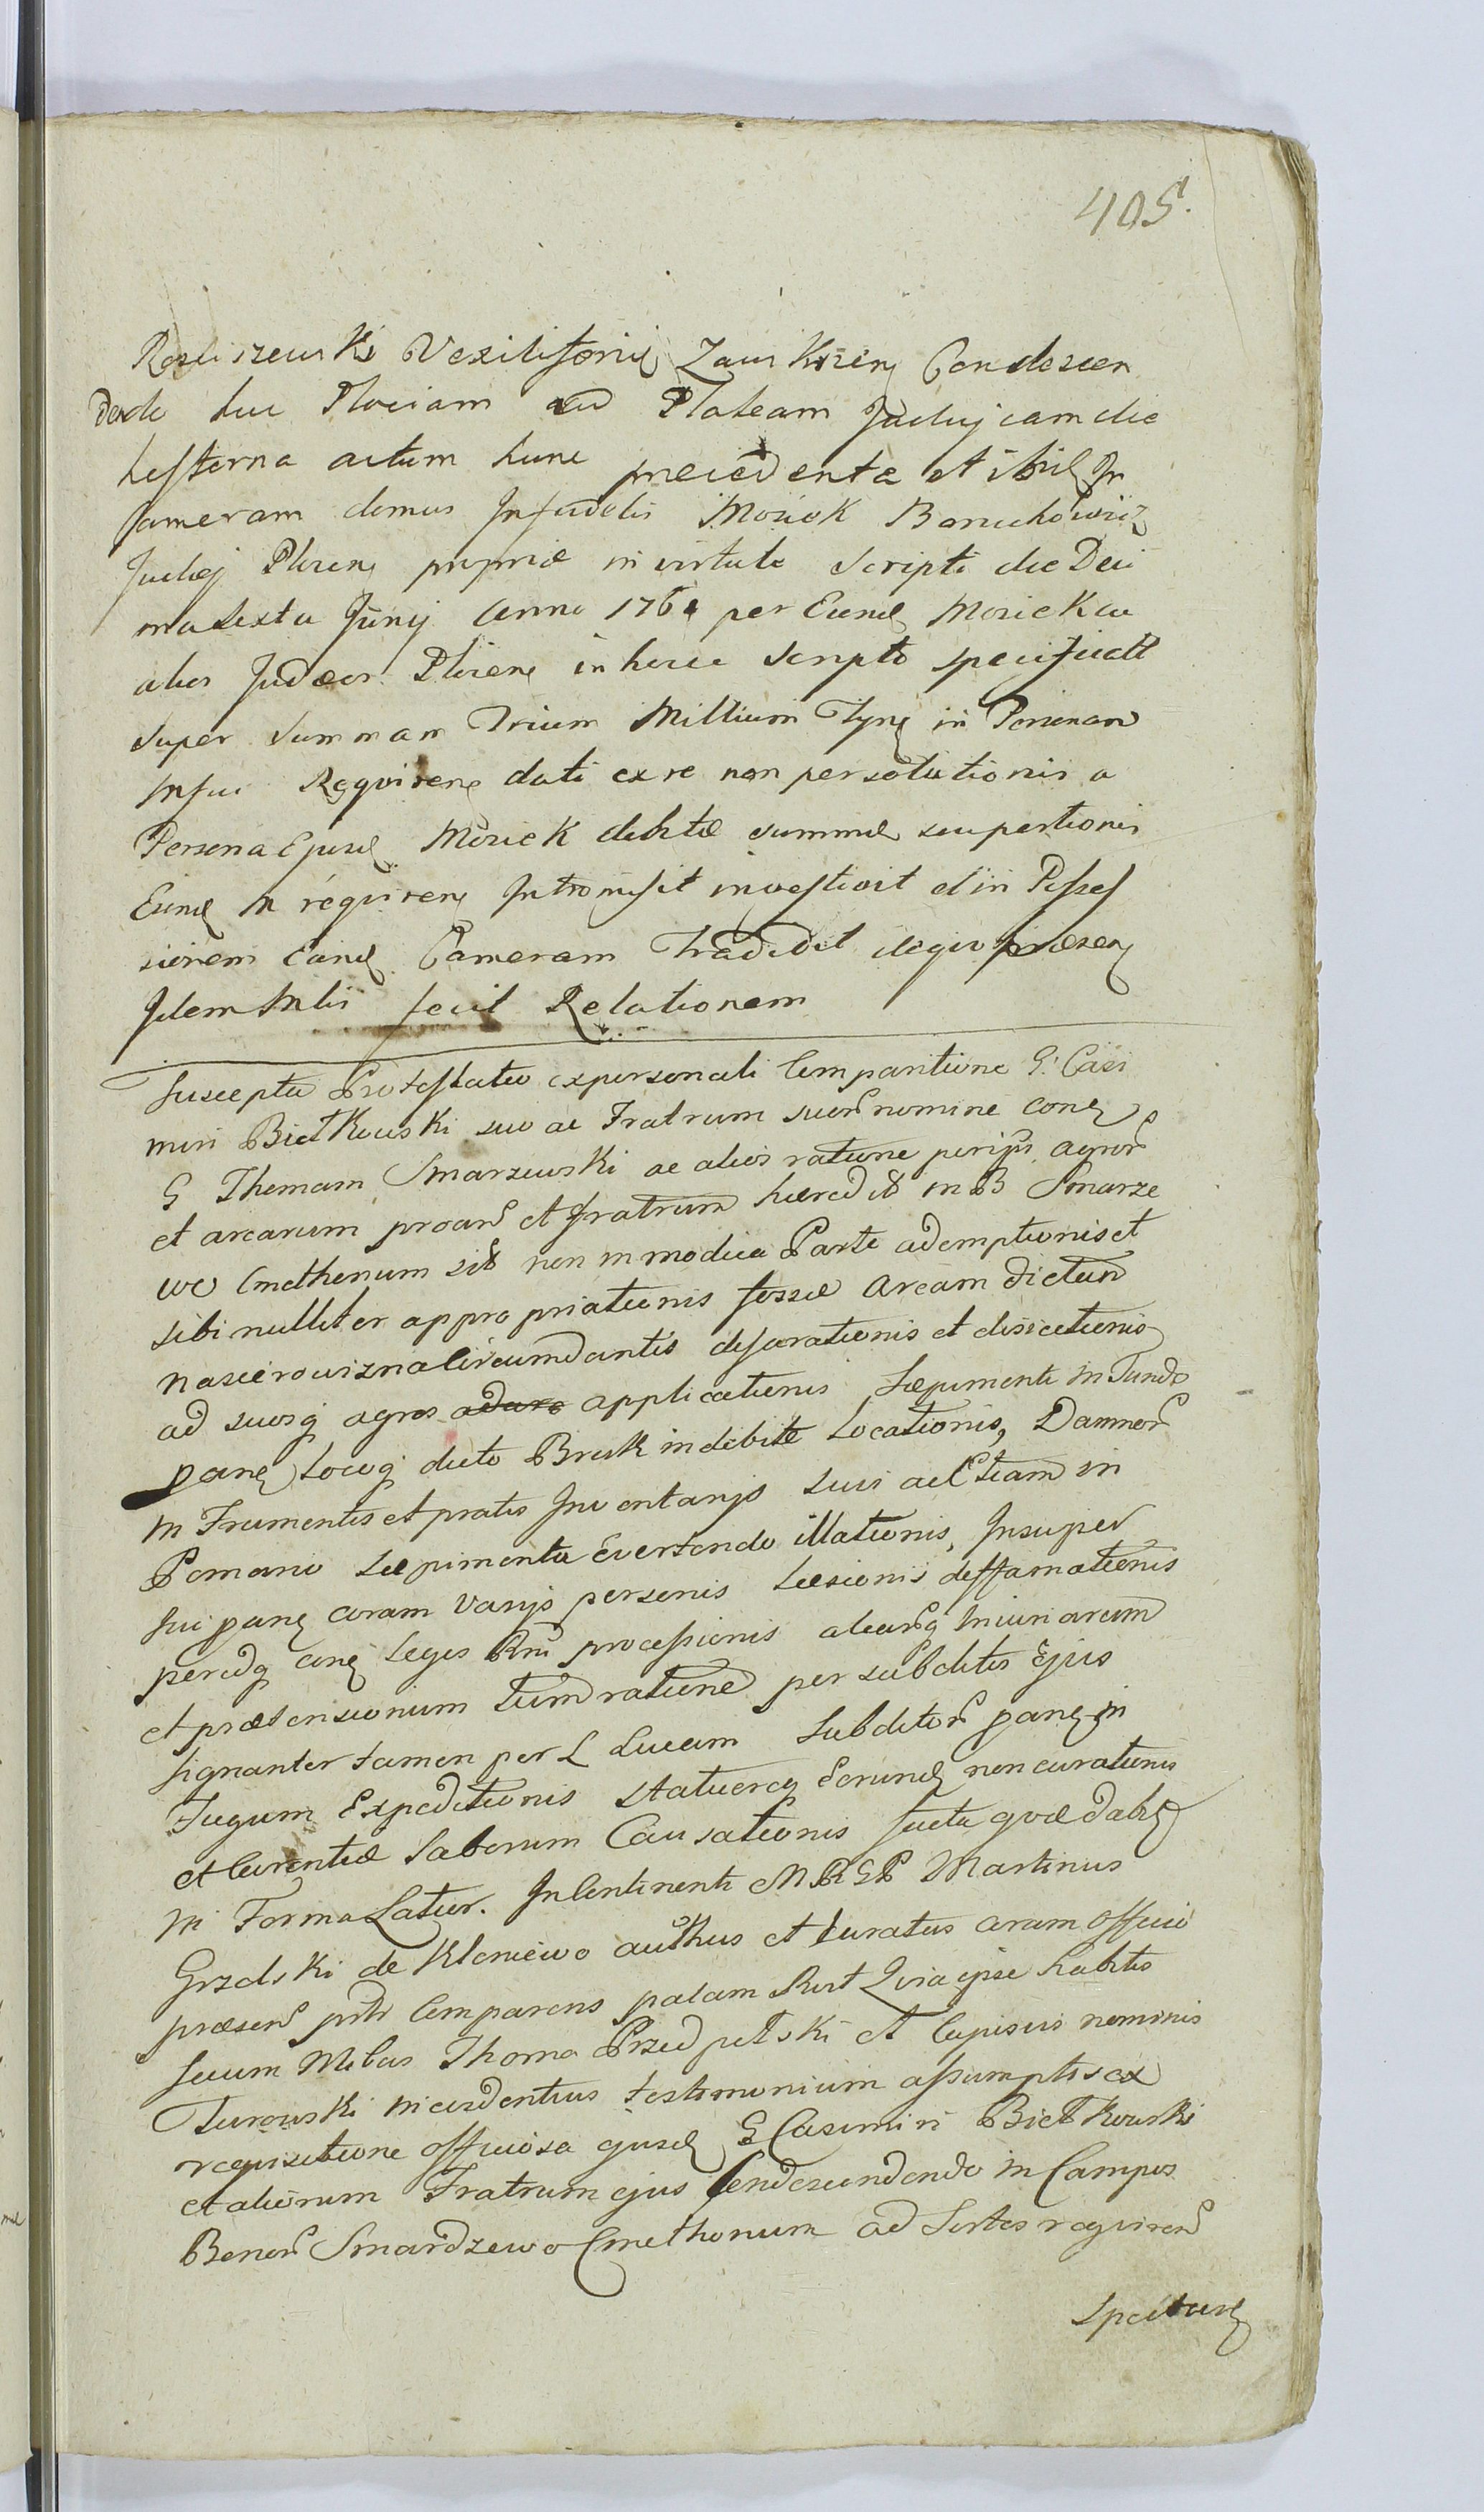 405.
Rosciszewski Vexiliferiḍ Zawkrzen Condescen
dendo huc Plociam ad Plateam Judaicam die
hesterna actum hunc precedente et ibid In
Cameram domus Infidelis Mosiek Boruchowicz
Judej Plocen propriæ in virtute Scripti die Deci
ma sexta Junij Anno 1761 per Eund Mosiek ac
alios Judæos Plocen in hocce Scripto specificatt
super summam Trium Millium Tynf in Personam
Infri Requiren dati ex re non persolutionis a
Persona Ejusd Mosiek debitæ summæ seu portionis
Eund M requiren Intromisit investivit et in Posses
sionem Eand Cameram Tradidit deqvo præsen
Idem Mlis fecit Relationem
Suscepta Protestatio ex personali Comparitione G. Casi
miri Bietkowski suo ac Fratrum suor nomine con
G Thomam Smarzewski ac alios ratione agror
et arearum proan et fratrum hæred in B Smarze
wo Cmethonum sit non in modica Parte ademptionis et
sibi nulliter appropriationis fossæ aream dictam
nasierowizna circumdantis disicetionis
ad suosq agros adare applicationis Sæpimenti in Fundo
pane Locoq dicto Brusk indebite Locationis, Damnor
in Frumentis et pratis Inventarijs suis ac Etiam in
Pomario Sæpimenta Evertendo illationis, Insuper
sui pane coram varijs personis Læsionis deffamationis
peridq cone Leges Rni processionis aliarq Iniuriarum
et prætensionum tum ratione per subditos Ejus
signanter tamen per L Lucam Subditor pane in
Fugum Expeditionis statuereq Eorund non curationis
et Carentiæ Laborum Causationis facta qvæ dabit
in Forma Latior. Incontinenti M R G P Martinus
Grzelski de Kleniewo authus et Juratus coram officio
præsen prtr Comparens palam Rxit Qvia ipse habitis
secum Mbus Thoma Przedpelski et Cujusvis nominis
Turowski in evidentius testimonium assumptis ex
requisitione officiosa ejusd G Casimiri Bietkowski
et aliorum Fratrum ejus Condescendendo in Campos
Bonor Smardzewo Cmethonum ad Sortes requiren